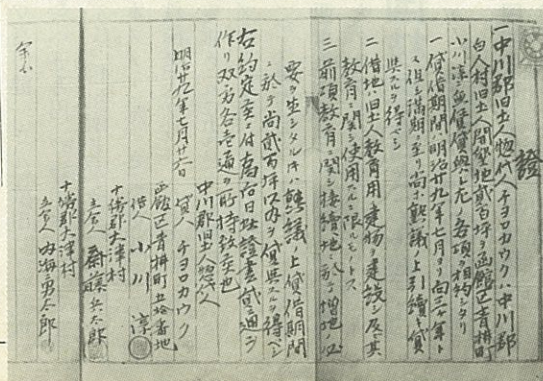 證
一中川郡旧土人惣代人チヨロカウクハ中川郡
白人村旧土人開墾地貳百坪ヲ函館区青柳町
小川淳無借貸與シ左ノ各項ヲ相約シタリ
一貸借期間ハ明治廿九年七月ヨリ向三ヶ年トス
但シ満期ニ至リ尚ホ熟議ノ上引続キ貸
與スルヲ得ベシ
二借地ハ旧土人教育用建物ヲ建設シ及其
教育ニ関シ使用スルニ限ルモノトス
三前項教育ニ関シ接續地ニ於テ増地ノ必
要ヲ生シタルキハ熟議ノ上貸借期間
ニ於テ尚貳百坪以内ヲ貸與スルヲ得ベシ
右約定
證書貳通ヲ
作リ双方各壱通ヲ所持致
明治廿九年七月廿六日
中川郡旧土人惣代人
貸人 チヨロカウク
函館区青柳町五拾番地
借人 小川 淳
十勝郡大津村
立會人 齋藤兵太郎
十勝郡大津村
立會人 内海勇太郎